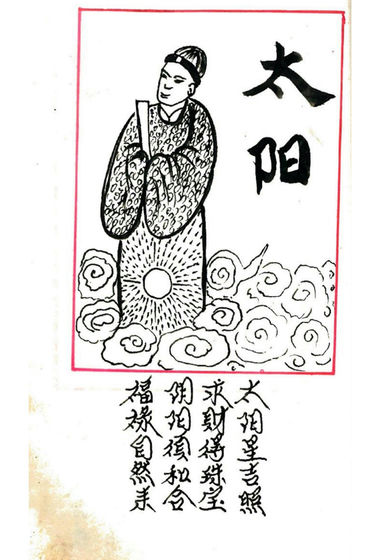 太阳
太阳星吉照
求财得珠宝
阴阳须和合
福禄自然来